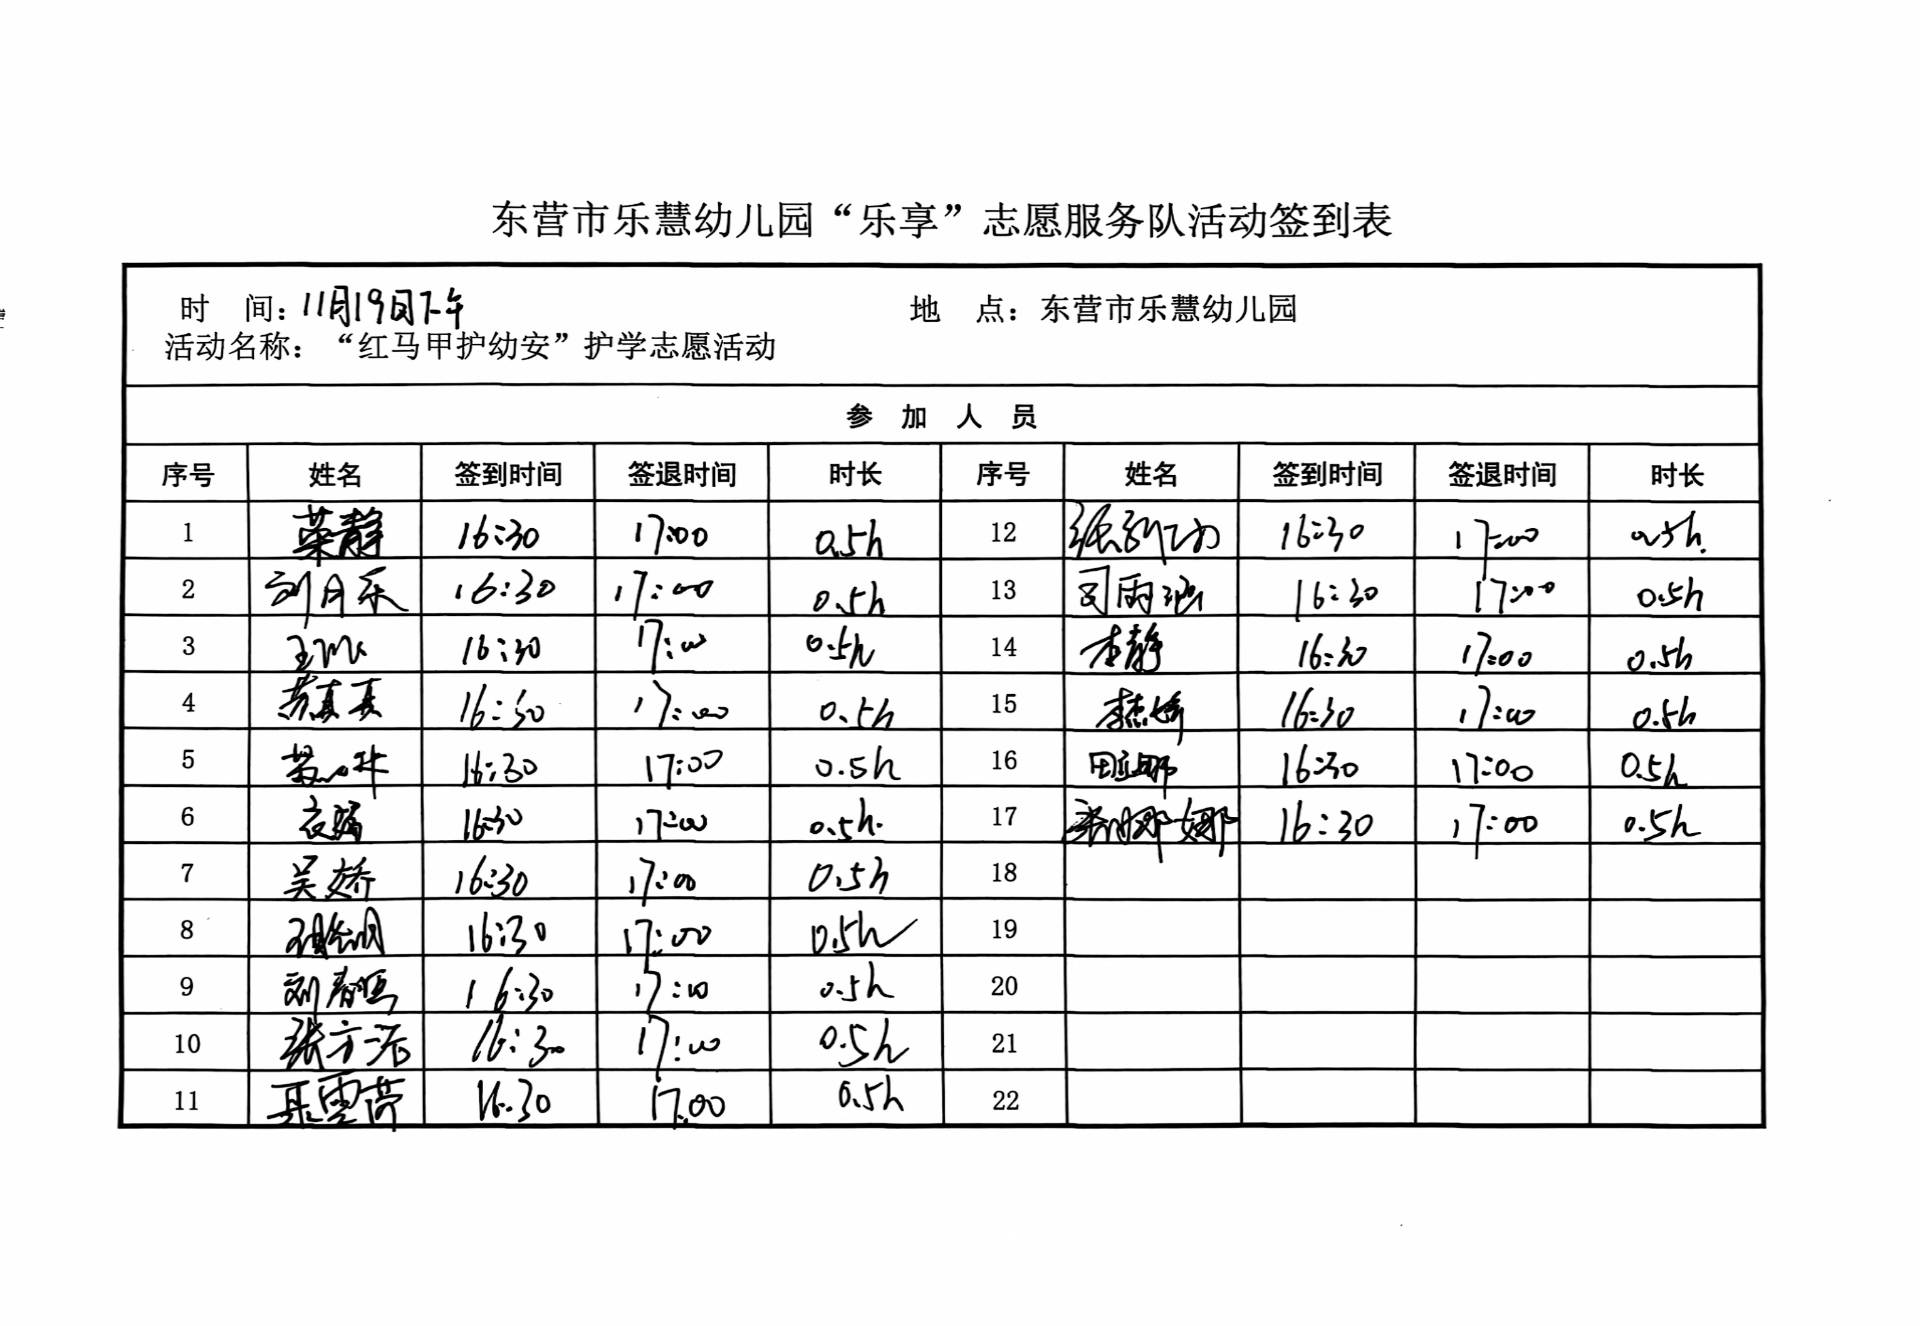 东营市乐慧幼儿园“乐享”志愿服务队活动签到表
时 间：11月19日下午 地 点：东营市乐慧幼儿园
活动名称：“红马甲护幼安”护学志愿活动
参 加 人 员
序号 姓名 签到时间 签退时间 时长 序号 姓名 签到时间 签退时间 时长
1 荣静 16:30 17:00 0.5h 12 16:30 17:00 0.5h.
2 刘月乐 16:30 17:00 0.5h 13 司雨涵 16:30 17:00 0.5h
3 16:30 17:00 0.5h 14 李静 16:30 17:00 0.5h
4 16:30 17:00 0.5h 15 16:30 17:00 0.5h
5 16:30 17:00 0.5h 16 田亚娜 16:30 17:00 0.5h
6 16:30 17:00 0.5h. 17 16:30 17:00 0.5h
7 吴娇 16:30 17:00 0.5h 18
8 16:30 17:00 0.5h 19
9 16:30 17:00 0.5h 20
10 16:30 17:00 0.5h 21
11 16:30 17:00 0.5h 22